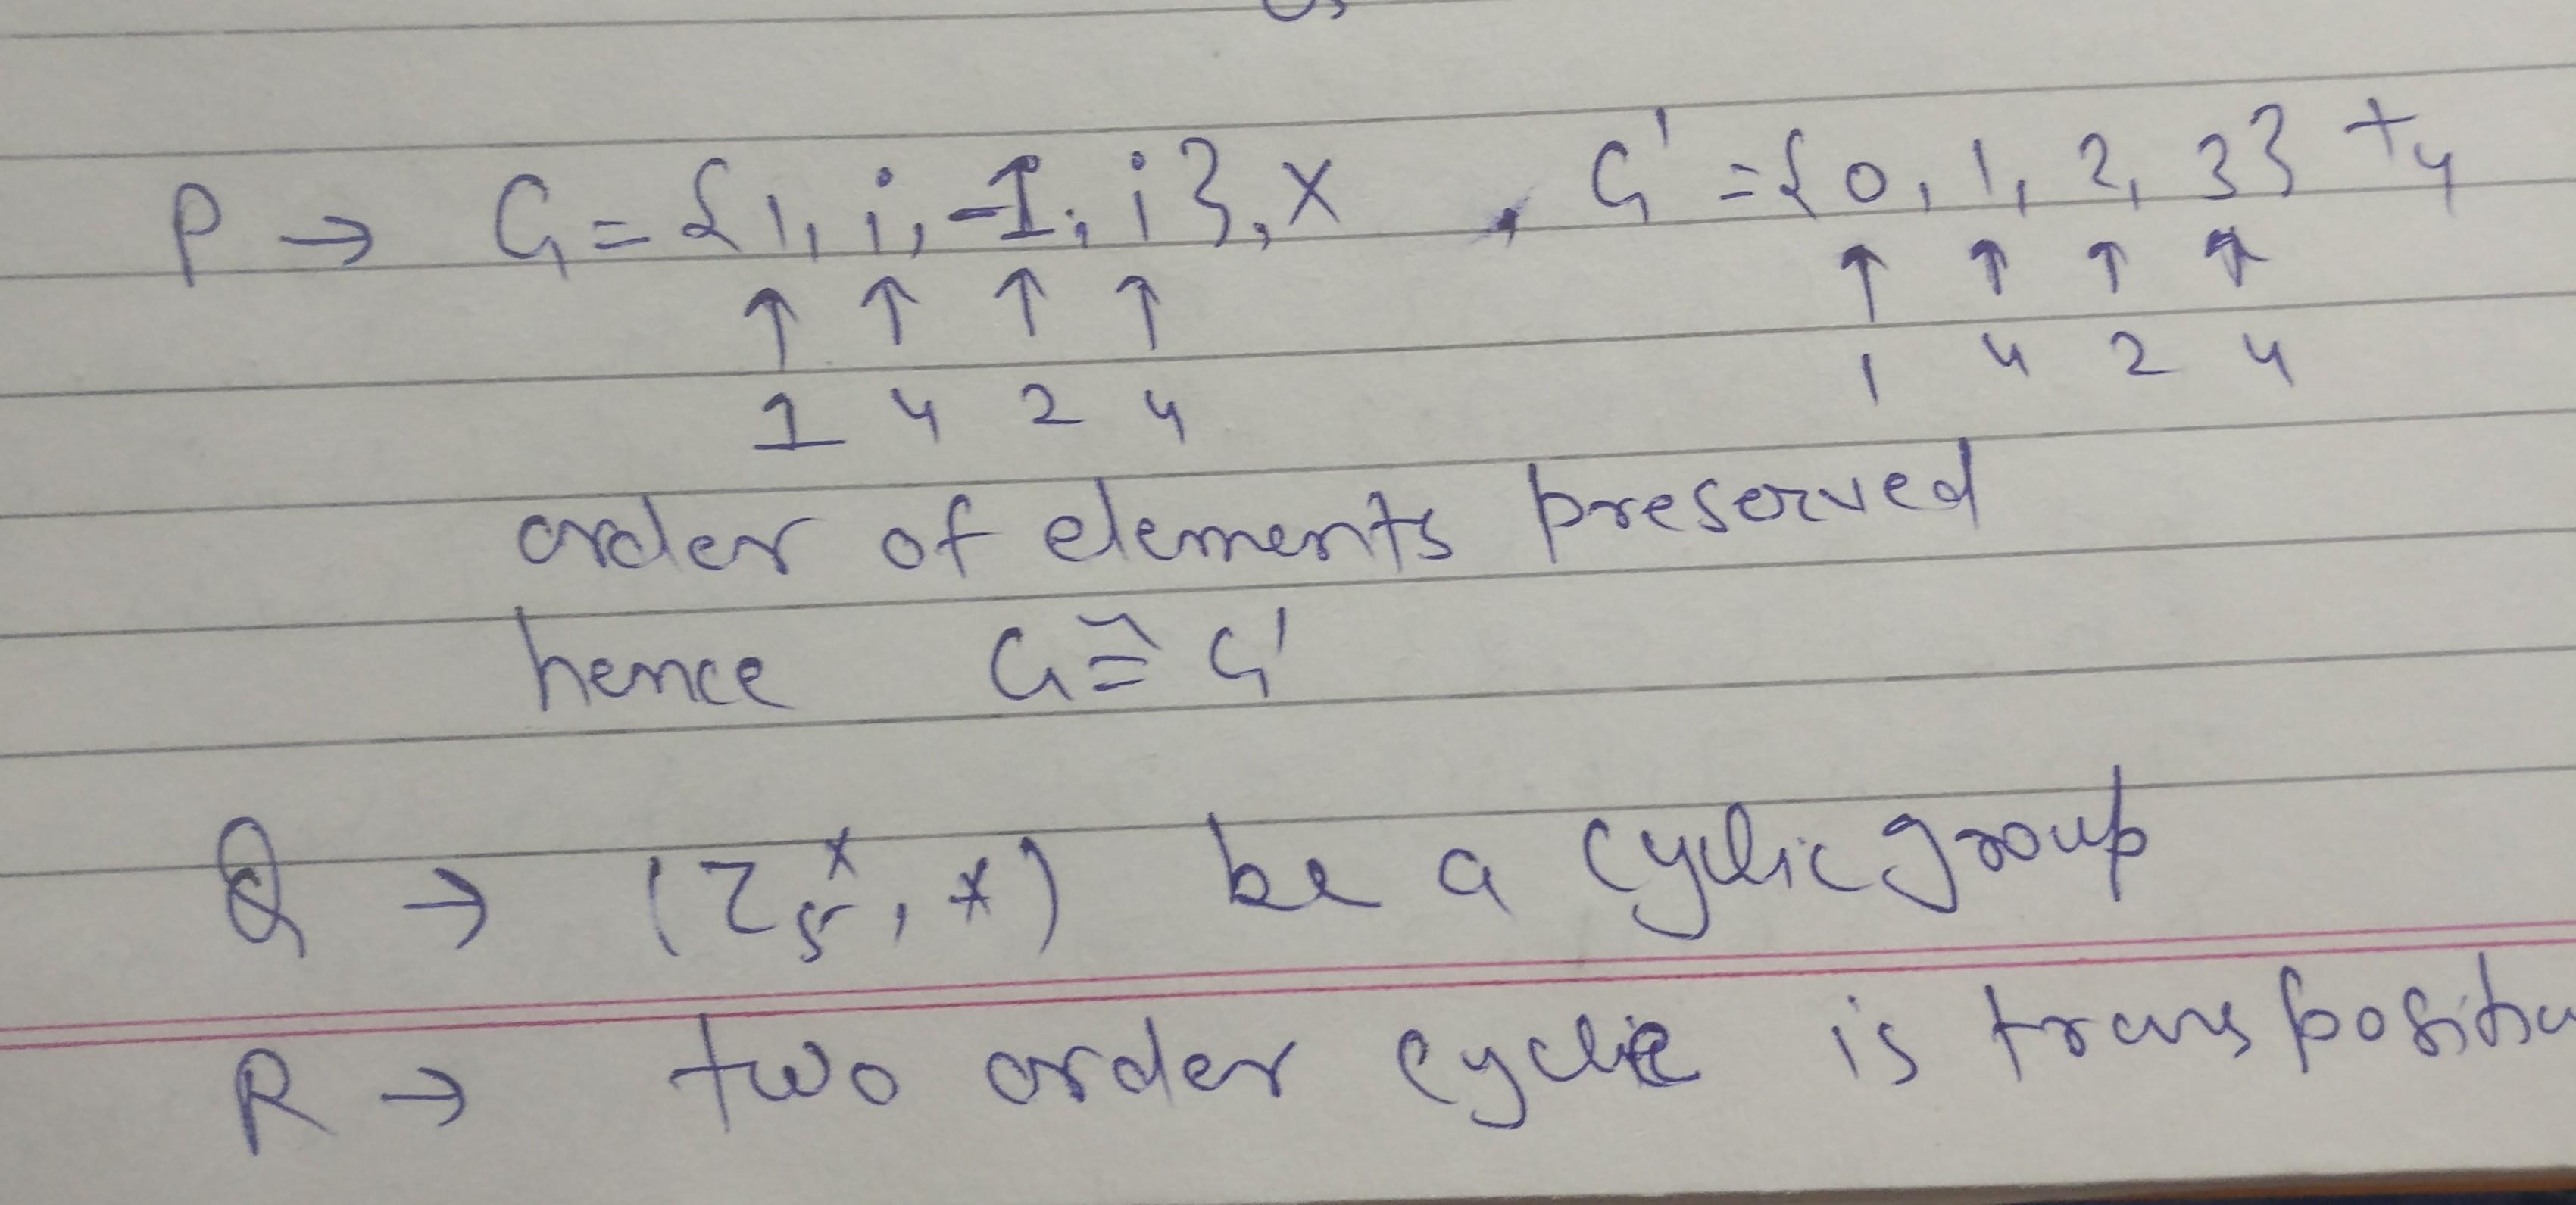 P → G = {1, i, -1, i}, × , G' = {0, 1, 2, 3} +₄
↑ ↑ ↑ ↑ ↑ ↑ ↑ ↑
1 4 2 4 1 4 2 4
order of elements preserved
hence G ≅ G'
Q → (Z₅ˣ, *) be a cyclic group
R → two order cycle is